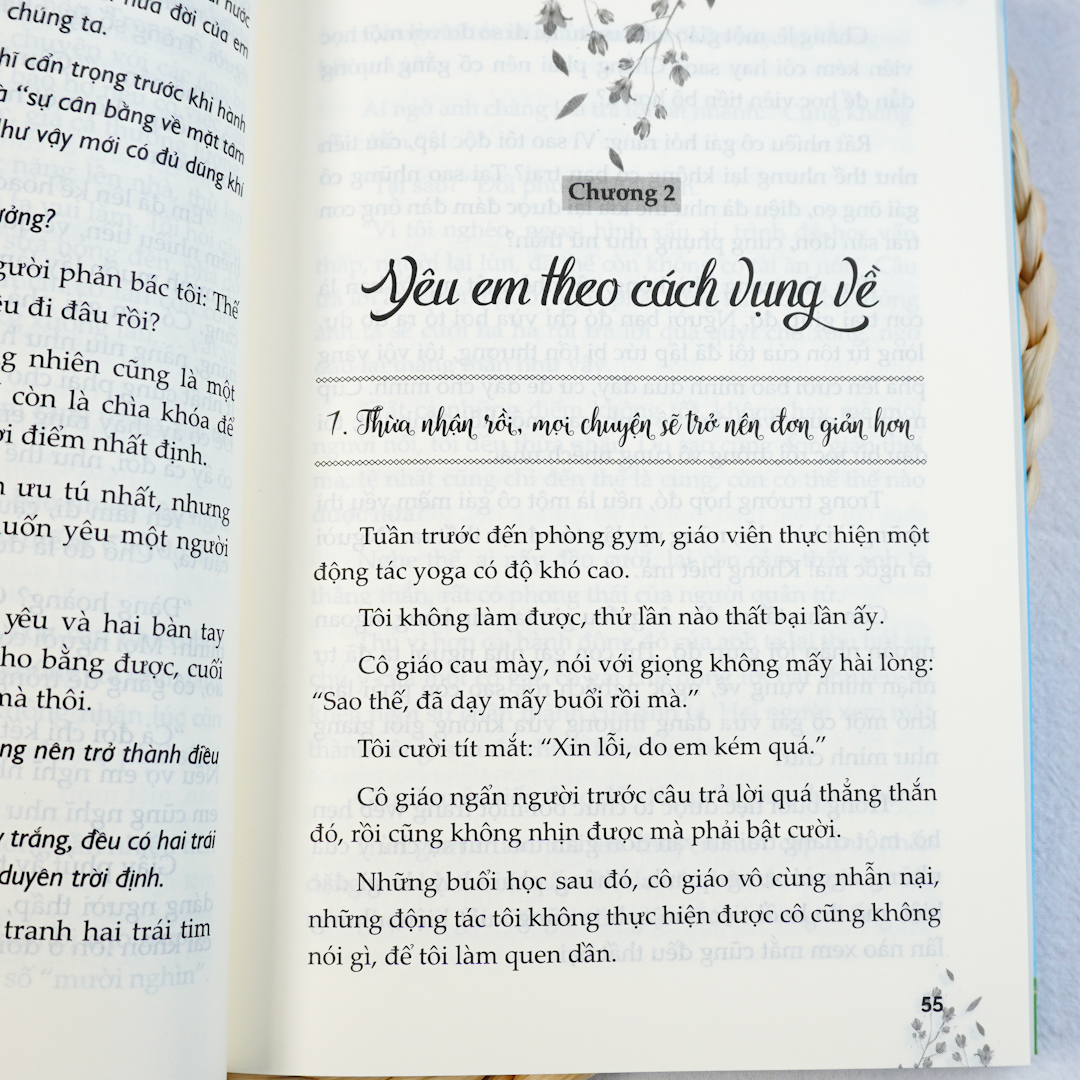 nửa đời của em
chúng ta.
cẩn trọng trước khi hành
“sự cân bằng về mặt tâm
Như vậy mới có đủ dũng khí
người phản bác tôi: Thế
đi đâu rồi?
nhiên cũng là một
còn là chìa khóa để
điểm nhất định.
ưu tú nhất, nhưng
muốn yêu một người
yêu và hai bàn tay
cho bằng được, cuối
mà thôi.
nên trở thành điều
trắng, đều có hai trái
duyên trời định.
tranh hai trái tim
số “mười nghìn”.
Chương 2
Yêu em theo cách vụng về
1. Thừa nhận rồi, mọi chuyện sẽ trở nên đơn giản hơn
Tuần trước đến phòng gym, giáo viên thực hiện một
động tác yoga có độ khó cao.
Tôi không làm được, thử lần nào thất bại lần ấy.
Cô giáo cau mày, nói với giọng không mấy hài lòng:
“Sao thế, đã dạy mấy buổi rồi mà.”
Tôi cười tít mắt: “Xin lỗi, do em kém quá.”
Cô giáo ngẩn người trước câu trả lời quá thẳng thắn
đó, rồi cũng không nhịn được mà phải bật cười.
Những buổi học sau đó, cô giáo vô cùng nhẫn nại,
những động tác tôi không thực hiện được cô cũng không
nói gì, để tôi làm quen dần.
55